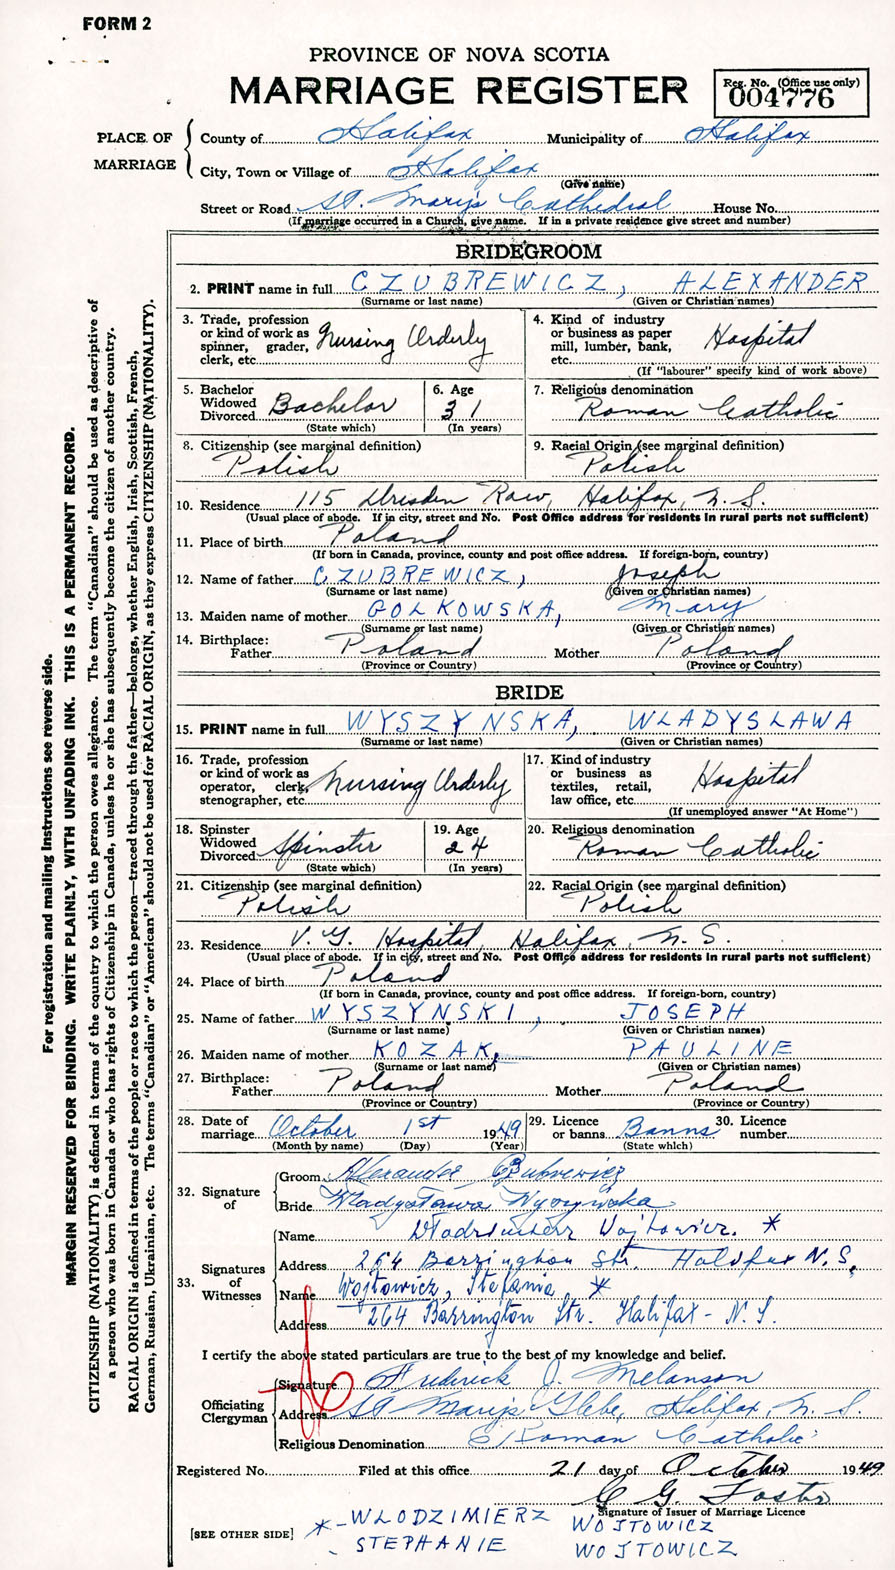 FORM 2
PROVINCE OF NOVA SCOTIA
MARRIAGE REGISTER
Reg. No. (Office use only)
004776
PLACE OF MARRIAGE
County of Halifax Municipality of Halifax
City, Town or Village of Halifax
(Give name)
Street or Road St. Mary's Cathedral House No.
(If marriage occurred in a Church, give name. If in a private residence give street and number)
For registration and mailing instructions see reverse side.
MARGIN RESERVED FOR BINDING. WRITE PLAINLY, WITH UNFADING INK. THIS IS A PERMANENT RECORD.
CITIZENSHIP (NATIONALITY) is defined in terms of the country to which the person owes allegiance. The term "Canadian" should be used as descriptive of
a person who was born in Canada or who has rights of Citizenship in Canada, unless he or she has subsequently become the citizen of another country.
RACIAL ORIGIN is defined in terms of the people or race to which the person—traced through the father—belongs, whether English, Irish, Scottish, French,
German, Russian, Ukrainian, etc. The terms "Canadian" or "American" should not be used for RACIAL ORIGIN, as they express CITIZENSHIP (NATIONALITY).
BRIDEGROOM
2. PRINT name in full CZUBREWICZ, ALEXANDER
(Surname or last name) (Given or Christian names)
3. Trade, profession or kind of work as spinner, grader, clerk, etc. Nursing Orderly
4. Kind of industry or business as paper mill, lumber, bank, etc. Hospital
(If "labourer" specify kind of work above)
5. Bachelor Widowed Divorced Bachelor
(State which)
6. Age 31
(In years)
7. Religious denomination
Roman Catholic
8. Citizenship (see marginal definition)
Polish
9. Racial Origin (see marginal definition)
Polish
10. Residence 115 Dresden Row, Halifax, N. S.
(Usual place of abode. If in city, street and No. Post Office address for residents in rural parts not sufficient)
11. Place of birth Poland
(If born in Canada, province, county and post office address. If foreign-born, country)
12. Name of father CZUBREWICZ, Joseph
(Surname or last name) (Given or Christian names)
13. Maiden name of mother GOLKOWSKA, Mary
(Surname or last name) (Given or Christian names)
14. Birthplace:
Father Poland Mother Poland
(Province or Country) (Province or Country)
BRIDE
15. PRINT name in full WYSZYNSKA, WLADYSLAWA
(Surname or last name) (Given or Christian names)
16. Trade, profession or kind of work as operator, clerk, stenographer, etc. Nursing Orderly
17. Kind of industry or business as textiles, retail, law office, etc. Hospital
(If unemployed answer "At Home")
18. Spinster Widowed Divorced Spinster
(State which)
19. Age 24
(In years)
20. Religious denomination
Roman Catholic
21. Citizenship (see marginal definition)
Polish
22. Racial Origin (see marginal definition)
Polish
23. Residence V. G. Hospital, Halifax, N. S.
(Usual place of abode. If in city, street and No. Post Office address for residents in rural parts not sufficient)
24. Place of birth Poland
(If born in Canada, province, county and post office address. If foreign-born, country)
25. Name of father WYSZYNSKI, JOSEPH
(Surname or last name) (Given or Christian names)
26. Maiden name of mother KOZAK, PAULINE
(Surname or last name) (Given or Christian names)
27. Birthplace:
Father Poland Mother Poland
(Province or Country) (Province or Country)
28. Date of marriage October 1st 1949
(Month by name) (Day) (Year)
29. Licence or banns Banns
(State which)
30. Licence number
32. Signature of
Groom Alexander Czubrewicz
Bride Wladyslawa Wyszynska
33. Signatures of Witnesses
Name Wlodzimierz Wojtowicz. *
Address 264 Barrington Str. Halifax N.S.
Name Wojtowicz, Stefania *
Address 264 Barrington Str. Halifax - N. S.
I certify the above stated particulars are true to the best of my knowledge and belief.
Officiating Clergyman
Signature Frederick J. Melanson
Address St Mary's Glebe, Halifax, N. S.
Religious Denomination Roman Catholic
Registered No. Filed at this office 21 day of October 1949
C G. Foster
Signature of Issuer of Marriage Licence
[SEE OTHER SIDE]
* - WLODZIMIERZ WOJTOWICZ
- STEPHANIE WOJTOWICZ